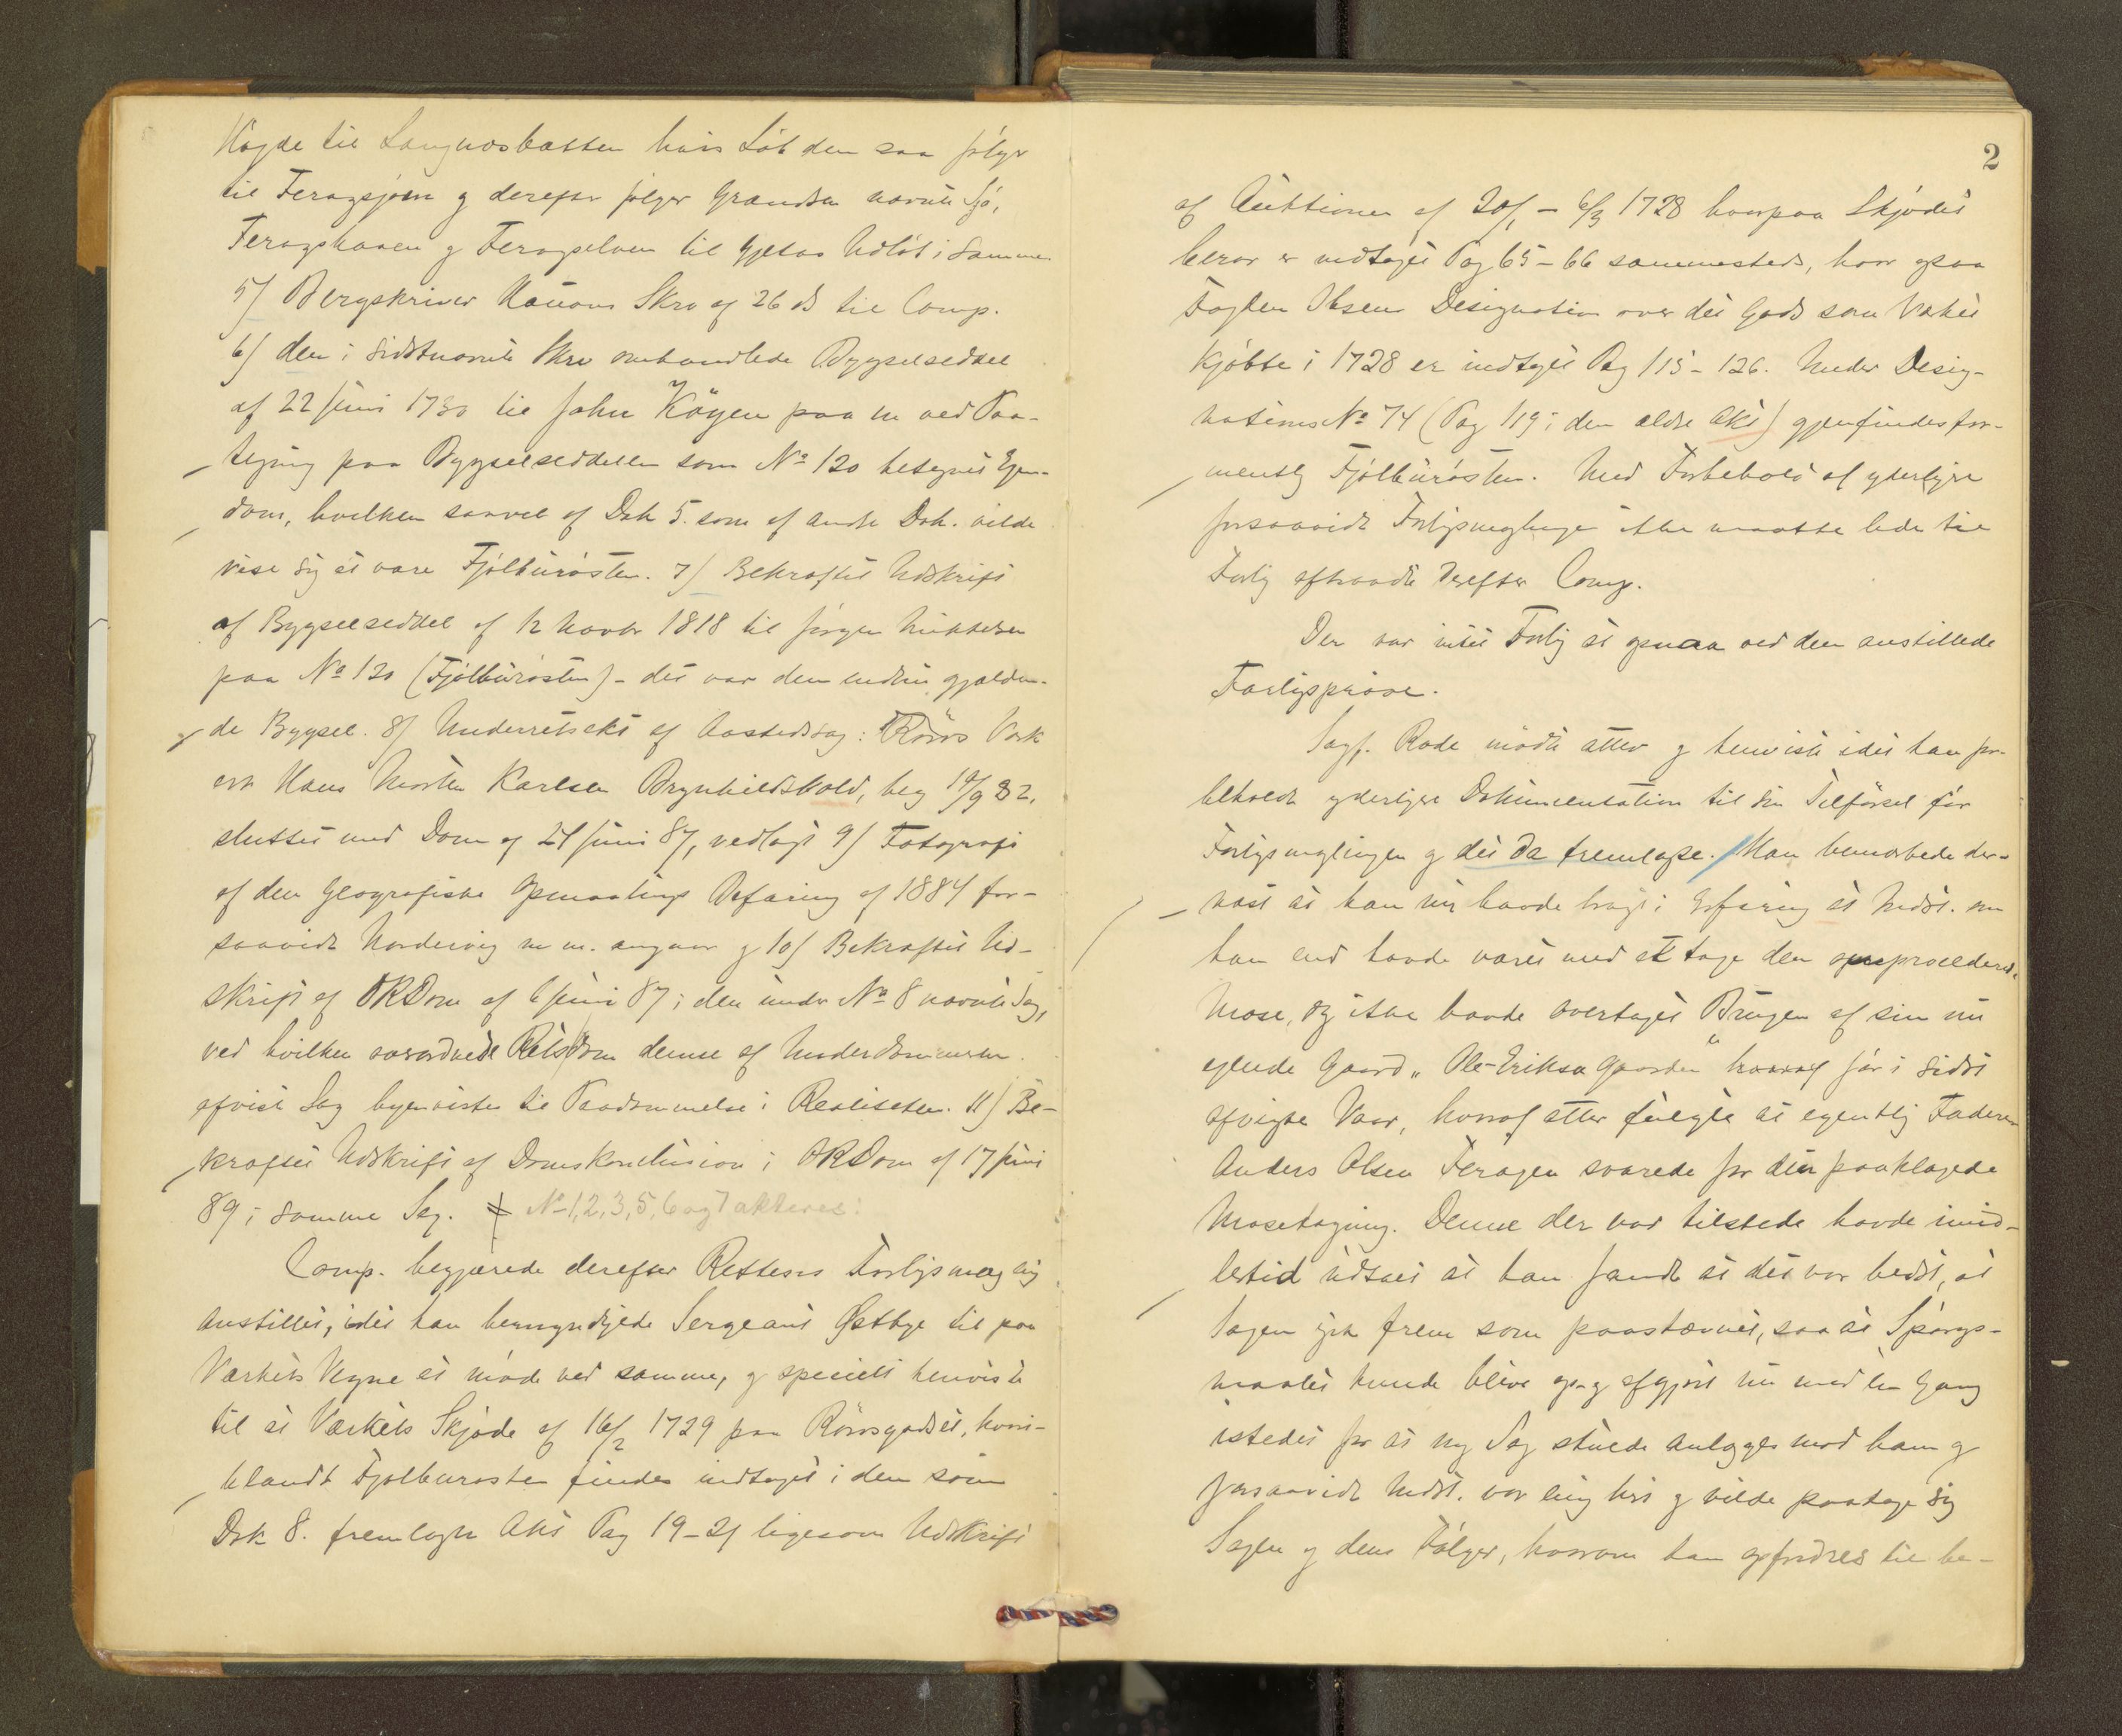 Høyde til Langnæsbækken hvis Løb den saa følger
til Feragsjøen og derefter følger Grændsen nævnte Sjø,
Feragshaaen og Feragselven til Gjetas Udløb i samme
5) Bergskriver Hauans Skr af 26 ds til Comp.
6) den i sidstnævnte Skr omhandlede Bygselseddel
af 22 Juni 1730 til John Köyen paa en ved Paa-
tegning paa Bygselseddelen som No 120 betegnet Ejen-
dom, hvilken saavel af Dok 5. som af andre Dok. vilde
vise sig at være Fjølburøsten. 7) Bekræftet Udskrift
af Bygselseddel af 12 Novbr 1818 til Jörgen Mikkelsen
paa No 120 (Fjølburøsten) - det var den endnu gjælden-
de Bygsel. 8) Underretsakt af Aastedssag: Röros Værk
ctr Hans Morten Karlsen Brynhildsvold, beg 19/9 82,
sluttet med Dom af 24 Juni 87, vedlagt 9) Fotografi
af den Geografiske Opmaalings Befaring af 1884 for-
saavidt Nordervig m m. angaar og 10) Bekræftet Ud-
skrift af ORDom af 6 Juni 87 i den under No 8 nævnte Sag,
ved hvilken overordnede Retsdom denne af Underdommeren
afviste Sag hjemvistes til Paadømmelse i Realiteten. 11) Be-
kræftet Udskrift af Domskonclusion i ORDom af 17 Juni
89 i samme Sag. No 1,2,3,5,6 og 7 akteres:
Comp. begjærede derefter Rettens Forligsmægling
anstillet, idet han bemyndigede Sergeant Østbye til paa
Værkets Vegne at møde ved samme, og specielt henviste
til at Værkets Skjøde af 16/2 1729 paa Rörosgodset, hvori-
blandt Fjølburøsten findes indtaget i den som
Dok 8. fremlagte Akt Pag 19-21 ligesom Udskrift
2
af Auktionen af 20/1 - 6/3 1728 hvorpaa Skjødet
beror er indtaget Pag 65-66 sammesteds, hvor ogsaa
Fogden Olsens Designation over det Gods som Værket
kjøbte i 1728 er indtaget Pag 115-126. Under Desig-
nations No 74 (Pag 119 i den ældre Akt) gjenfindes for-
mentlig Fjølburøsten. Med Forbehold af yderligere
forsaavidt Forligsmæglingen ikke maatte lede til
Forlig aftraadte derefter Comp.
Der var intet Forlig at opnaa ved den anstillede
Forligsprøve.
Sagf. Rode mødte atter og henviste idet han for-
beholdt yderligere Dokumentation til sin Tilførsel før
Forligsmæglingen og det da fremlagte. Han bemærkede der-
næst at han nu havde bragt i Erfaring at Indst. om
han end havde været med at tage den omprocederede
Mose, dog ikke havde overtaget Brugen af sin nu
ejende Gaard „Ole-Eriksa Gaarden“ hvoraf før i sidst
afvigte Vaar, hvoraf atter fulgte at egentlig Faderen
Anders Olsen Feragen svarede for den paaklagede
Mosetagning. Denne der var tilstede havde imid-
lertid udtalt at han fandt at det var bedst, at
Sagen gik frem som paastævnet, saa at Spørgs-
maalet kunde blive op- og afgjort nu med en Gang
istedet for at ny Sag skulde anlægges mod ham og
forsaavidt Indst. var enig heri og vilde paatage sig
Sagen og dens Følger, hvorom han opfordres til be-